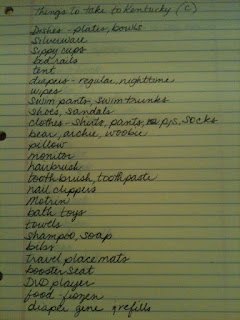 Things to take to Kentucky (C)
Dishes - plates, bowls
Silverware
Sippy cups
bedrails
tent
diapers - regular, nighttime
wipes
swim pants, swim trunks
shoes, sandals
clothes - shirts, pants, pjs, socks
bear, archie, woobie
pillow
monitor
hairbrush
toothbrush, toothpaste
nail clippers
Motrin
bath toys
towels
shampoo, soap
bibs
travel place mats
booster seat
DVD player
food - frozen
diaper genie refills